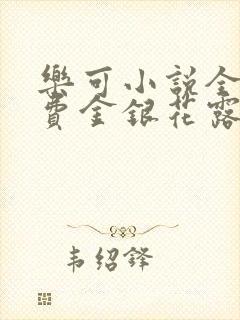 樂可小說全
費金銀花露
韦绍锋